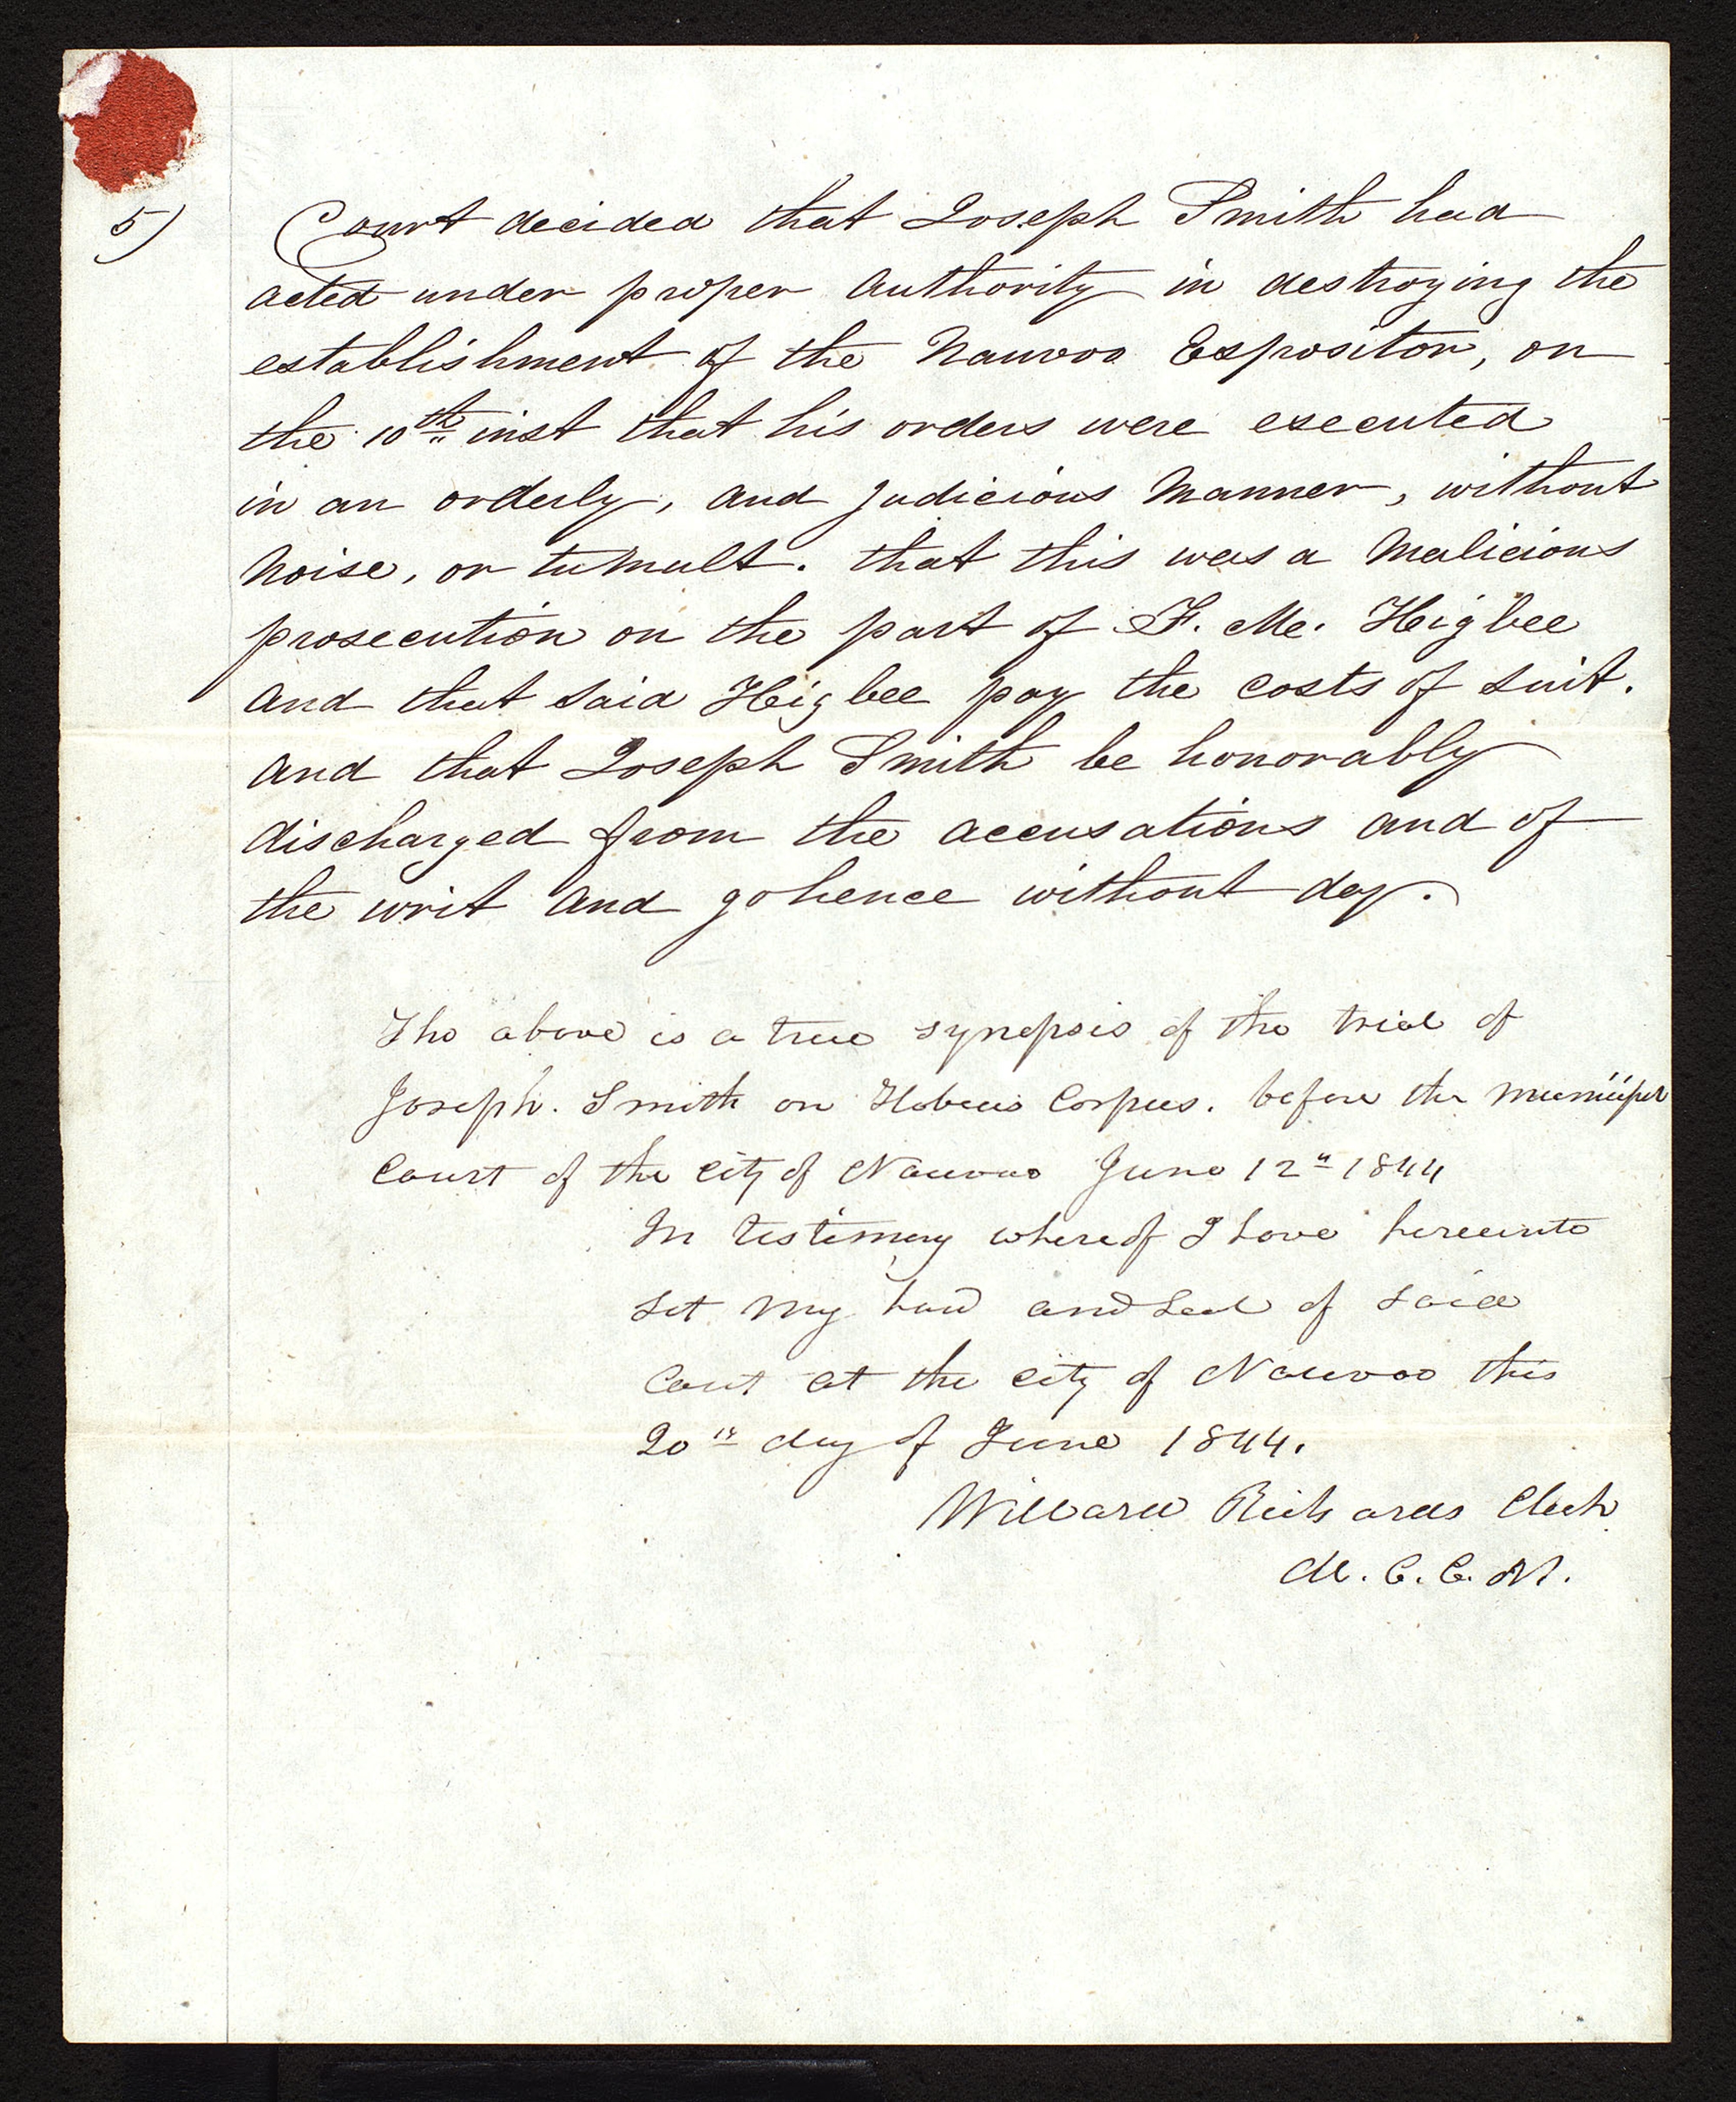 5)
Court decided that Joseph Smith had
acted under proper authority in destroying the
establishment of the Nauvoo Expositor, on
the 10th inst that his orders were executed
in an orderly, and judicious manner, without
noise, or tumult. that this was a malicious
prosecution on the part of F. M. Higbee
and that said Higbee pay the costs of suit.
and that Joseph Smith be honorably
discharged from the accusations and of
the writ and go hence without day.
The above is a true synopsis of the trial of
Joseph. Smith on Habeas Corpus. before the Municipal
Court of the City of Nauvoo June 12th 1844
In testimony whereof I have hereunto
set my hand and seal of said
Court at the city of Nauvoo this
20th day of June 1844.
Willard Richards Clerk
M. C. C. N.